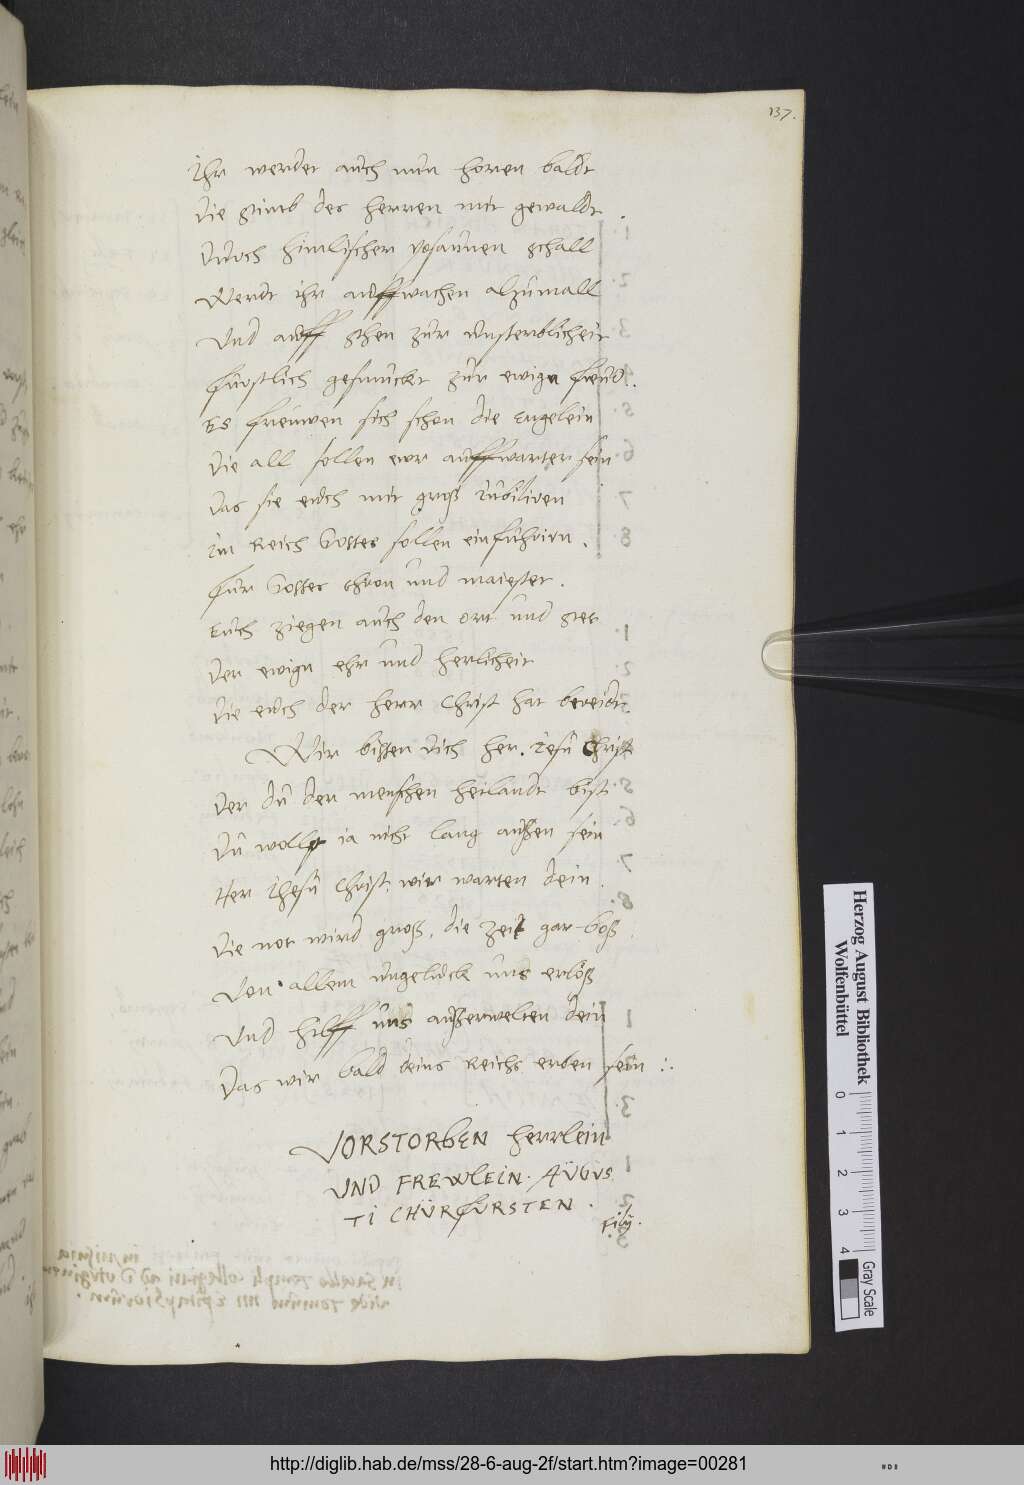 137.
Ihr werdet auch nun horen baldt
Die stimb des herren mit gewaldt.
Durch himlischer posaunen schall
Werdt ihr auffwachen alzumall
Und auff sthen zur unsterblicheit
fürstlich gesmuckt zur ewign freud.
Es freuwen sich schon die Engelein
Die all sollen ewr auffwarter sein
Das sie euch mit groß Jubiliren
Im Reich Gottes sollen einführirn.
für Gottes thron und maiestet.
Euch ziegen auch den ort und stet
Der ewign ehr und herlicheit
Die euch der herr Christ hat bereidt.
Wir bitten dich her. Jesu Christ
Der du der menschen heilandt bist
Du wollst ia nicht lang außen sein
Her Jhesu Christ: wir warten dein.
Die not wird groß, die zeit gar boß.
Von allem ungeluck uns erlöß
Und hilff uns außerwelten dein
Das wir bald deins Reichs erben sein :.
VORSTORBEN herrlein
UND FREWLEIN. AUGUS
TI CHURFURSTEN.
filij.
Herzog August Bibliothek
Wolfenbüttel
0 1 2 3 4
Gray Scale
http://diglib.hab.de/mss/28-6-aug-2f/start.htm?image=00281